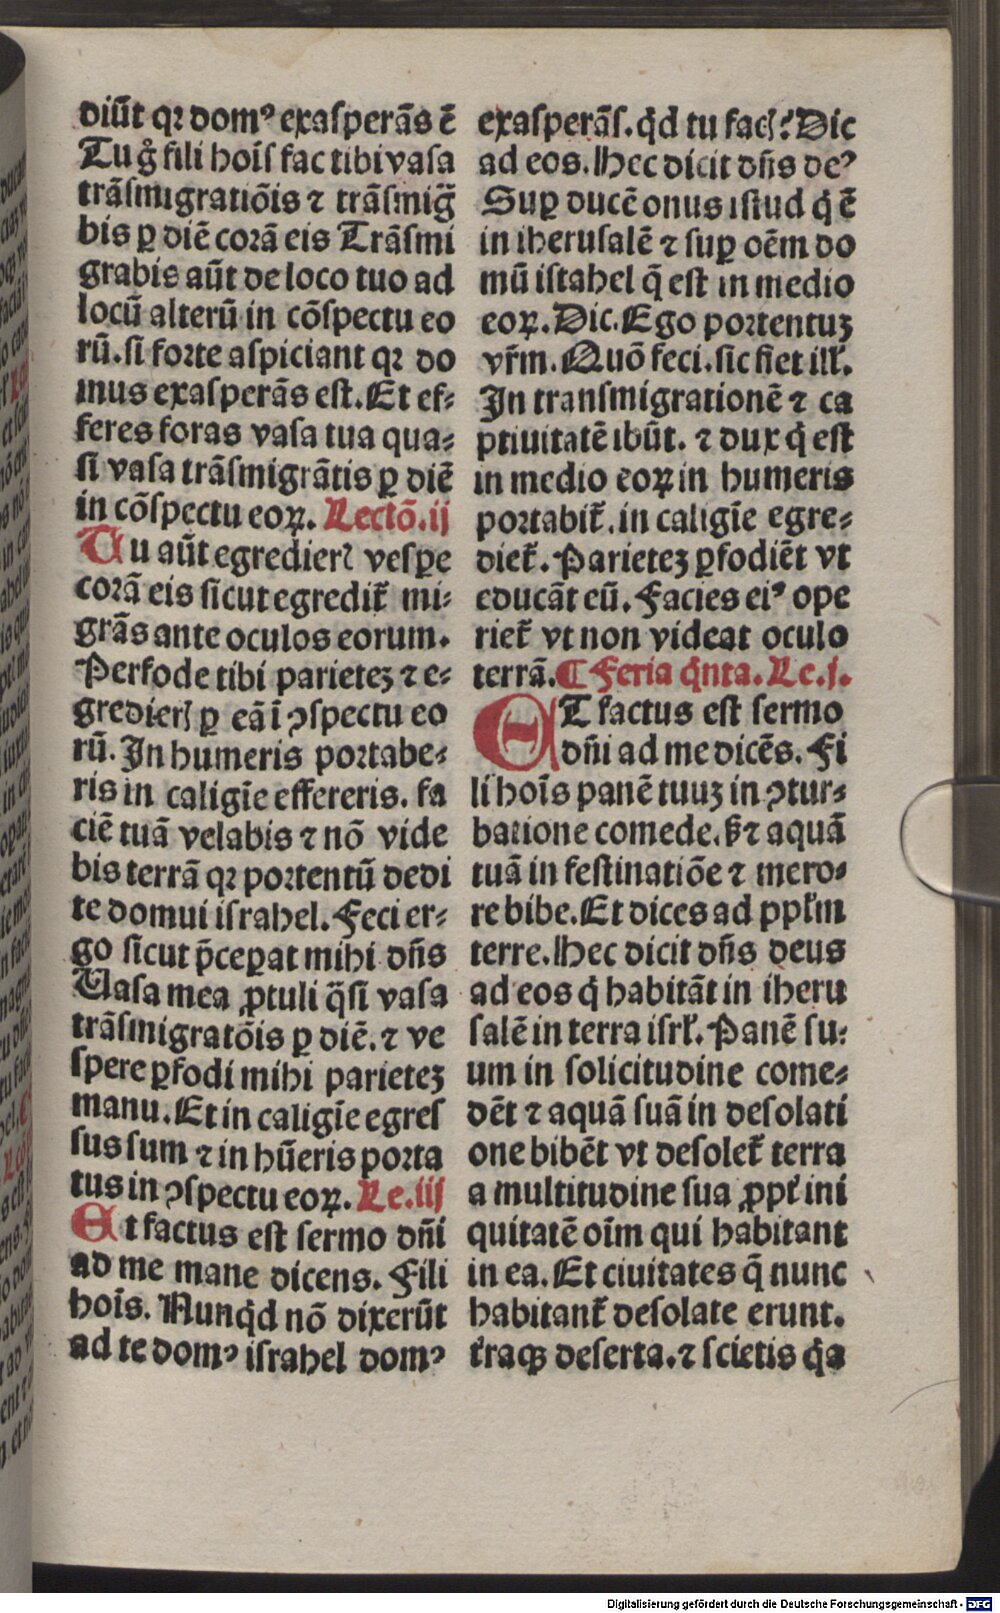 diūt qꝛ domꝰ exaſperās ē
Tu g̊ fili hoīſ fac tibi vaſa
trāſmigratiōis ⁊ trāſmig̃
bis ꝑ diē corā eis Trāſmi
grabis aūt de loco tuo ad
locū alterū in cōſpectu eo
rū. ſi forte aſpiciant qꝛ do
mus exaſperās eſt. Et ef⸗
feres foras vaſa tua qua⸗
ſi vaſa trāſmigrātis ꝑ diē
in cōſpectu eoꝝ. Lectō. ij
Tu aūt egredierꝭ veſpe
corā eis ſicut egredit᷑ mi⸗
grās ante oculos eorum.
Perfode tibi parietez ⁊ e⸗
gredierꝭ ꝑ eā ī ꝯſpectu eo
rū. In humeris portabe⸗
ris in caligīe effereris. fa
ciē tuā velabis ⁊ nō vide
bis terrā qꝛ portentū dedi
te domui iſrahel. Feci er⸗
go ſicut p̄ceꝑat mihi dn̄s
Vaſa mea ꝓtuli q̄ſi vaſa
trāſmigratōis ꝑ diē. ⁊ ve
ſpere ꝑfodi mihi parietez
manu. Et in caligīe egreſ
ſus ſum ⁊ in hūeris porta
tus in ꝯſpectu eoꝝ. Le. iij
Et factus eſt ſermo dn̄i
ad me mane dicens. Fili
hoīs. Nunqͥd nō dixerūt
ad te domꝰ iſrahel domꝰ
exaſperāſ. qͥd tu facꝭ? Dic
ad eos. Hec dicit dn̄s deꝰ
Suꝑ ducē onus iſtud qͥ ē
in iheruſalē ⁊ ſuꝑ oēm do
mū iſrahel q̄ eſt in medio
eoꝝ. Dic. Ego portentuz
vr̄m. Quō feci. ſic fiet ill᷑.
In tranſmigrationē ⁊ ca
ptiuitatē ibūt. ⁊ dux qͥ eſt
in medio eoꝝ in humeris
portabit᷑. in caligīe egre⸗
diet᷑. Parietez ꝑfodiēt vt
educāt eū. Facies eiꝰ ope
riet᷑ vt non videat oculo
terrā. ¶ Feria qͥnta. Le. j.
ET factus eſt ſermo
dn̄i ad me dicēs. Fi
li hoīs panē tuuz in ꝯtur⸗
batione comede. ſꝫ ⁊ aquā
tuā in feſtinatiōe ⁊ mero⸗
re bibe. Et dices ad ppl̄m
terre. Hec dicit dn̄s deus
ad eos qͥ habitāt in iheru
ſalē in terra iſrl᷑. Panē ſu⸗
um in ſolicitudine come⸗
dēt ⁊ aquā ſuā in deſolati
one bibēt vt deſolet᷑ terra
a multitudine ſua ꝓpt᷑ ini
quitatē oīm qui habitant
in ea. Et ciuitates q̄ nunc
habitant᷑ deſolate erunt.
t᷑raqꝫ deſerta. ⁊ ſcietis qͥa
Digitalisierung gefördert durch die Deutsche Forschungsgemeinschaft - DFG